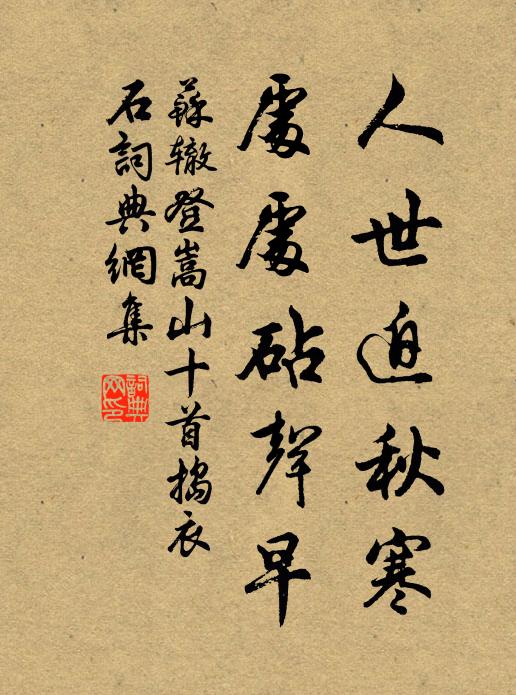 人世迫秋寒
處處砧聲早
蘇辙登嵩山十首搗衣
石詞典網集
詞典網印